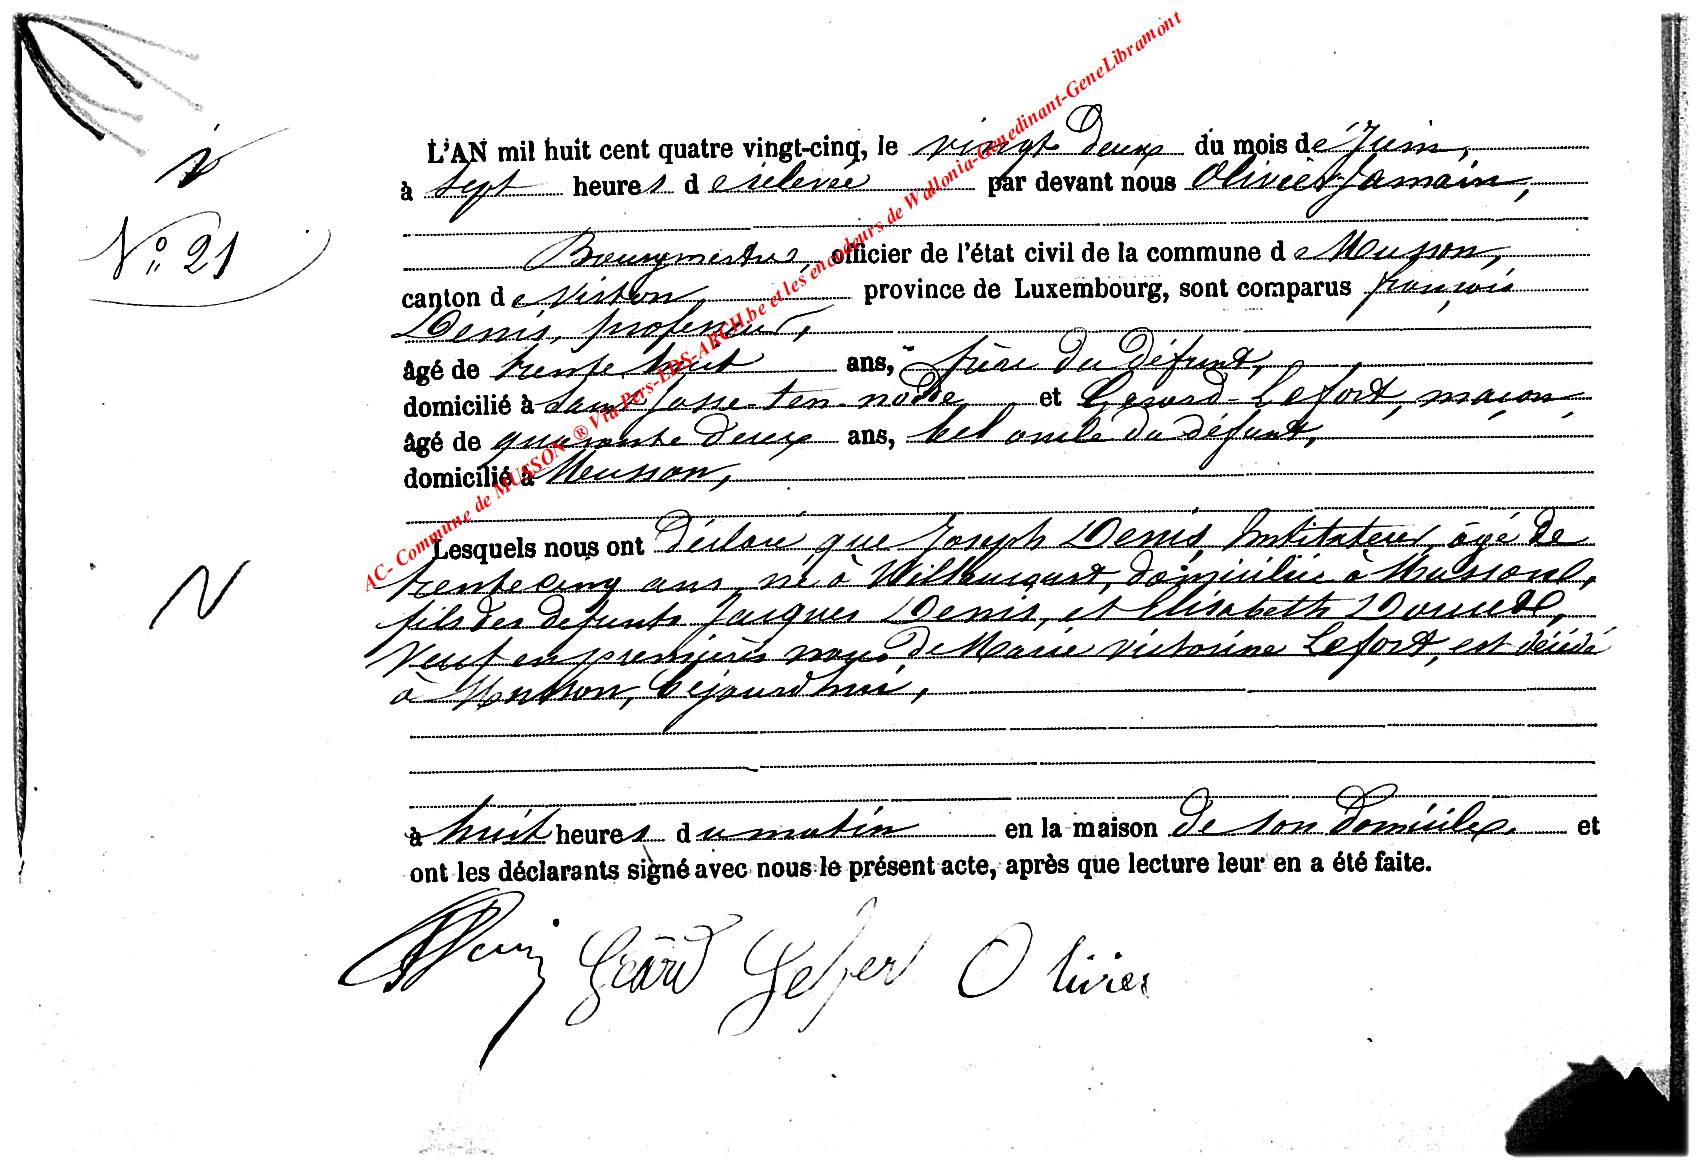 AC- Commune de MUSSON ® Via Pers-LDS-ARCH.be et les encodeurs de Wallonia-Genedinant-GeneLibramont
L'AN mil huit cent quatre vingt-cinq, le vingt deux du mois de Juin,
à sept heures de relevée par devant nous Olivier Jamain,
N° 21
Bourgmestre, officier de l'état civil de la commune de Musson,
canton de Virton, province de Luxembourg, sont comparus françois
Denis, professeur,
âgé de trente huit ans, frère du défunt,
domicilié à Saint Josse-ten-noode et Gerard Lefort, maçon,
âgé de quarante deux ans, bel oncle du défunt,
domicilié à Musson,
Lesquels nous ont déclaré que Joseph Denis, Instituteur, âgé de
trente cinq ans, né à Willancourt, domicilié à Musson,
fils des defunts Jacques Denis, et Elisabeth
Veuf en premières noces de Marie Victorine Lefort, est décédé
à Musson, cejourd'hui,
à huit heures du matin en la maison de son domicile, et
ont les déclarants signé avec nous le présent acte, après que lecture leur en a été faite.
Denis Gérard Lefort Olivier